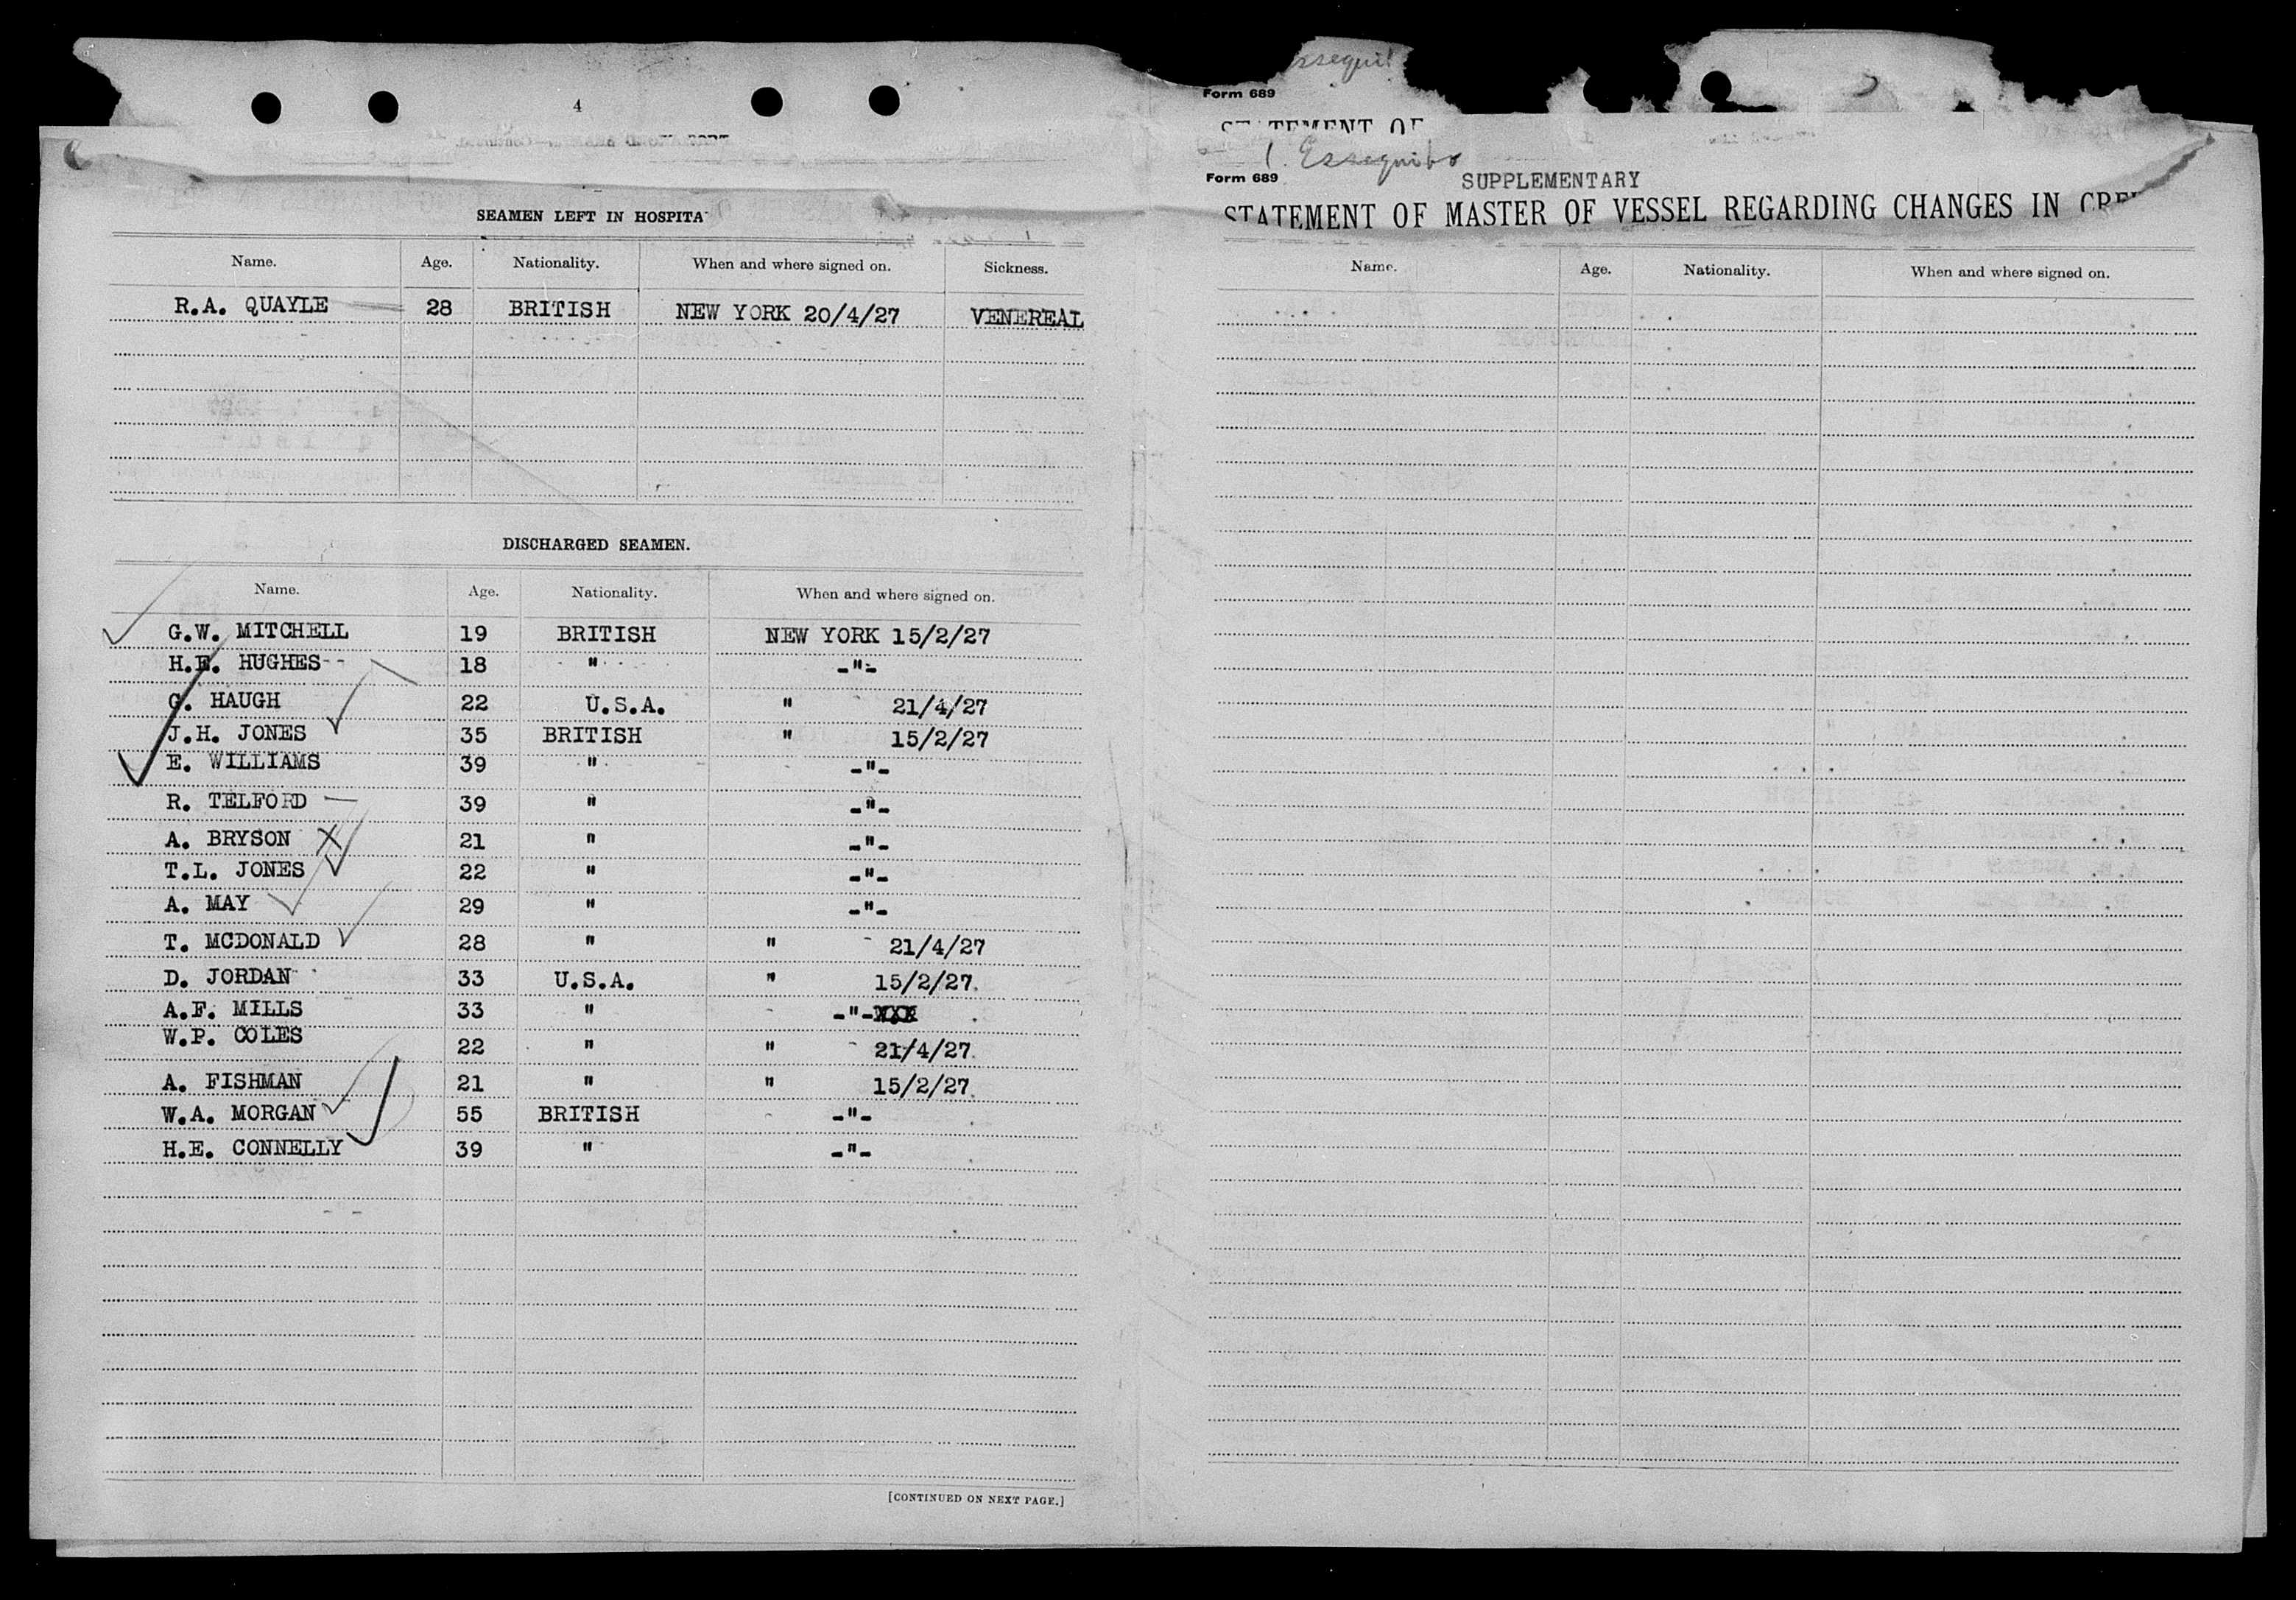 4
SEAMEN LEFT IN HOSPITA
Name. Age. Nationality. When and where signed on. Sickness.
R.A. QUAYLE 28 BRITISH NEW YORK 20/4/27 VENEREAL
DISCHARGED SEAMEN.
Name. Age. Nationality. When and where signed on.
G.W. MITCHELL 19 BRITISH NEW YORK 15/2/27
H.E. HUGHES-- 18 " -"-
G. HAUGH 22 U.S.A. " 21/4/27
J.H. JONES 35 BRITISH " 15/2/27
E. WILLIAMS 39 " -"-
R. TELFORD 39 " -"-
A. BRYSON 21 " -"-
T.L. JONES 22 " -"-
A. MAY 29 " -"-
T. MCDONALD 28 " " 21/4/27
D. JORDAN 33 U.S.A. " 15/2/27.
A.F. MILLS 33 " -"-
W.P. COLES 22 " " 21/4/27.
A. FISHMAN 21 " " 15/2/27.
W.A. MORGAN 55 BRITISH -"-
H.E. CONNELLY 39 " -"-
[CONTINUED ON NEXT PAGE.]
Form 689
STATEMENT OF
Essequibo
Form 689
SUPPLEMENTARY
STATEMENT OF MASTER OF VESSEL REGARDING CHANGES IN CRE
Name. Age. Nationality. When and where signed on.